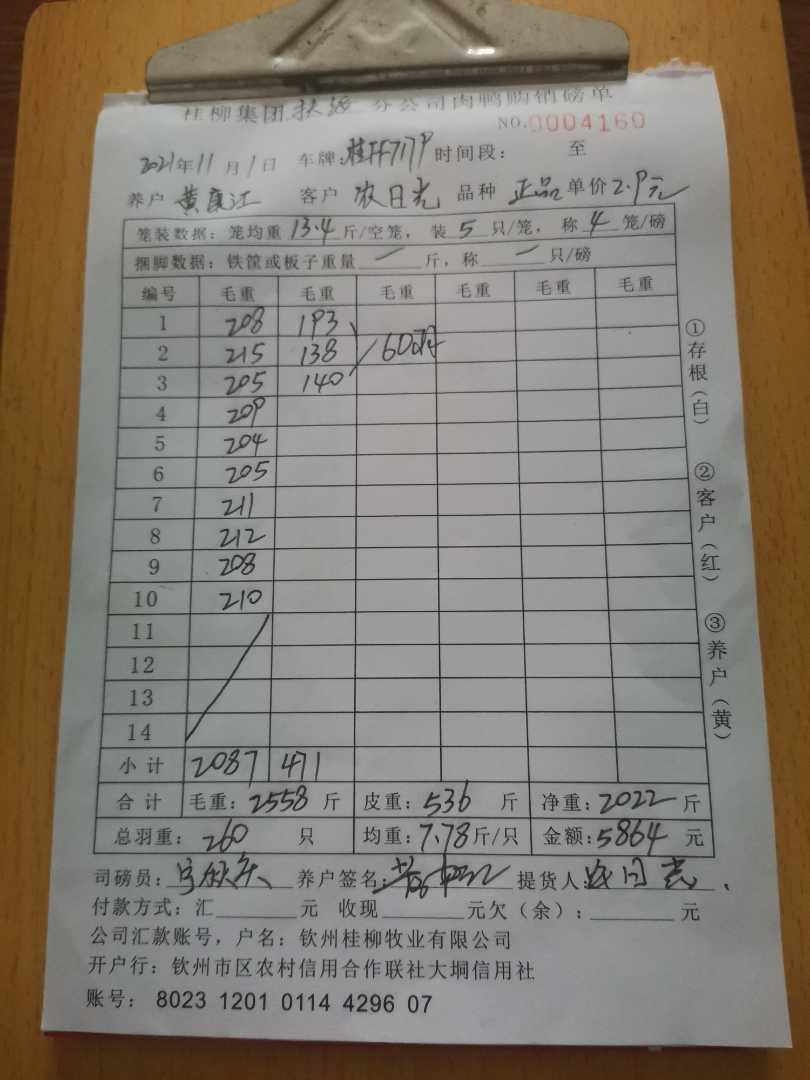 桂柳集团扶绥分公司肉鸭购销磅单
NO.0004160
2021年11月1日 车牌: 时间段: 至
养户 黄 江 客户 农日光 品种 正品 单价2.9元
笼装数据: 笼均重13.4斤/空笼, 装5只/笼, 称4笼/磅
捆脚数据: 铁筐或板子重量—斤, 称—只/磅
编号 毛重 毛重 毛重 毛重 毛重 毛重
1 208 193
2 215 138 60
3 205 140
4 209
5 204
6 205
7 211
8 212
9 208
10 210
11
12
13
14
小计 2087 471
合计 毛重: 2558 斤 皮重: 536 斤 净重: 2022 斤
总羽重: 260 只 均重: 7.78斤/只 金额: 5864 元
司磅员: 养户签名: 提货人: 农日光
付款方式: 汇 元 收现 元欠(余): 元
公司汇款账号, 户名: 钦州桂柳牧业有限公司
开户行: 钦州市区农村信用合作联社大垌信用社
账号: 8023 1201 0114 4296 07
①存根(白)
②客户(红)
③养户(黄)